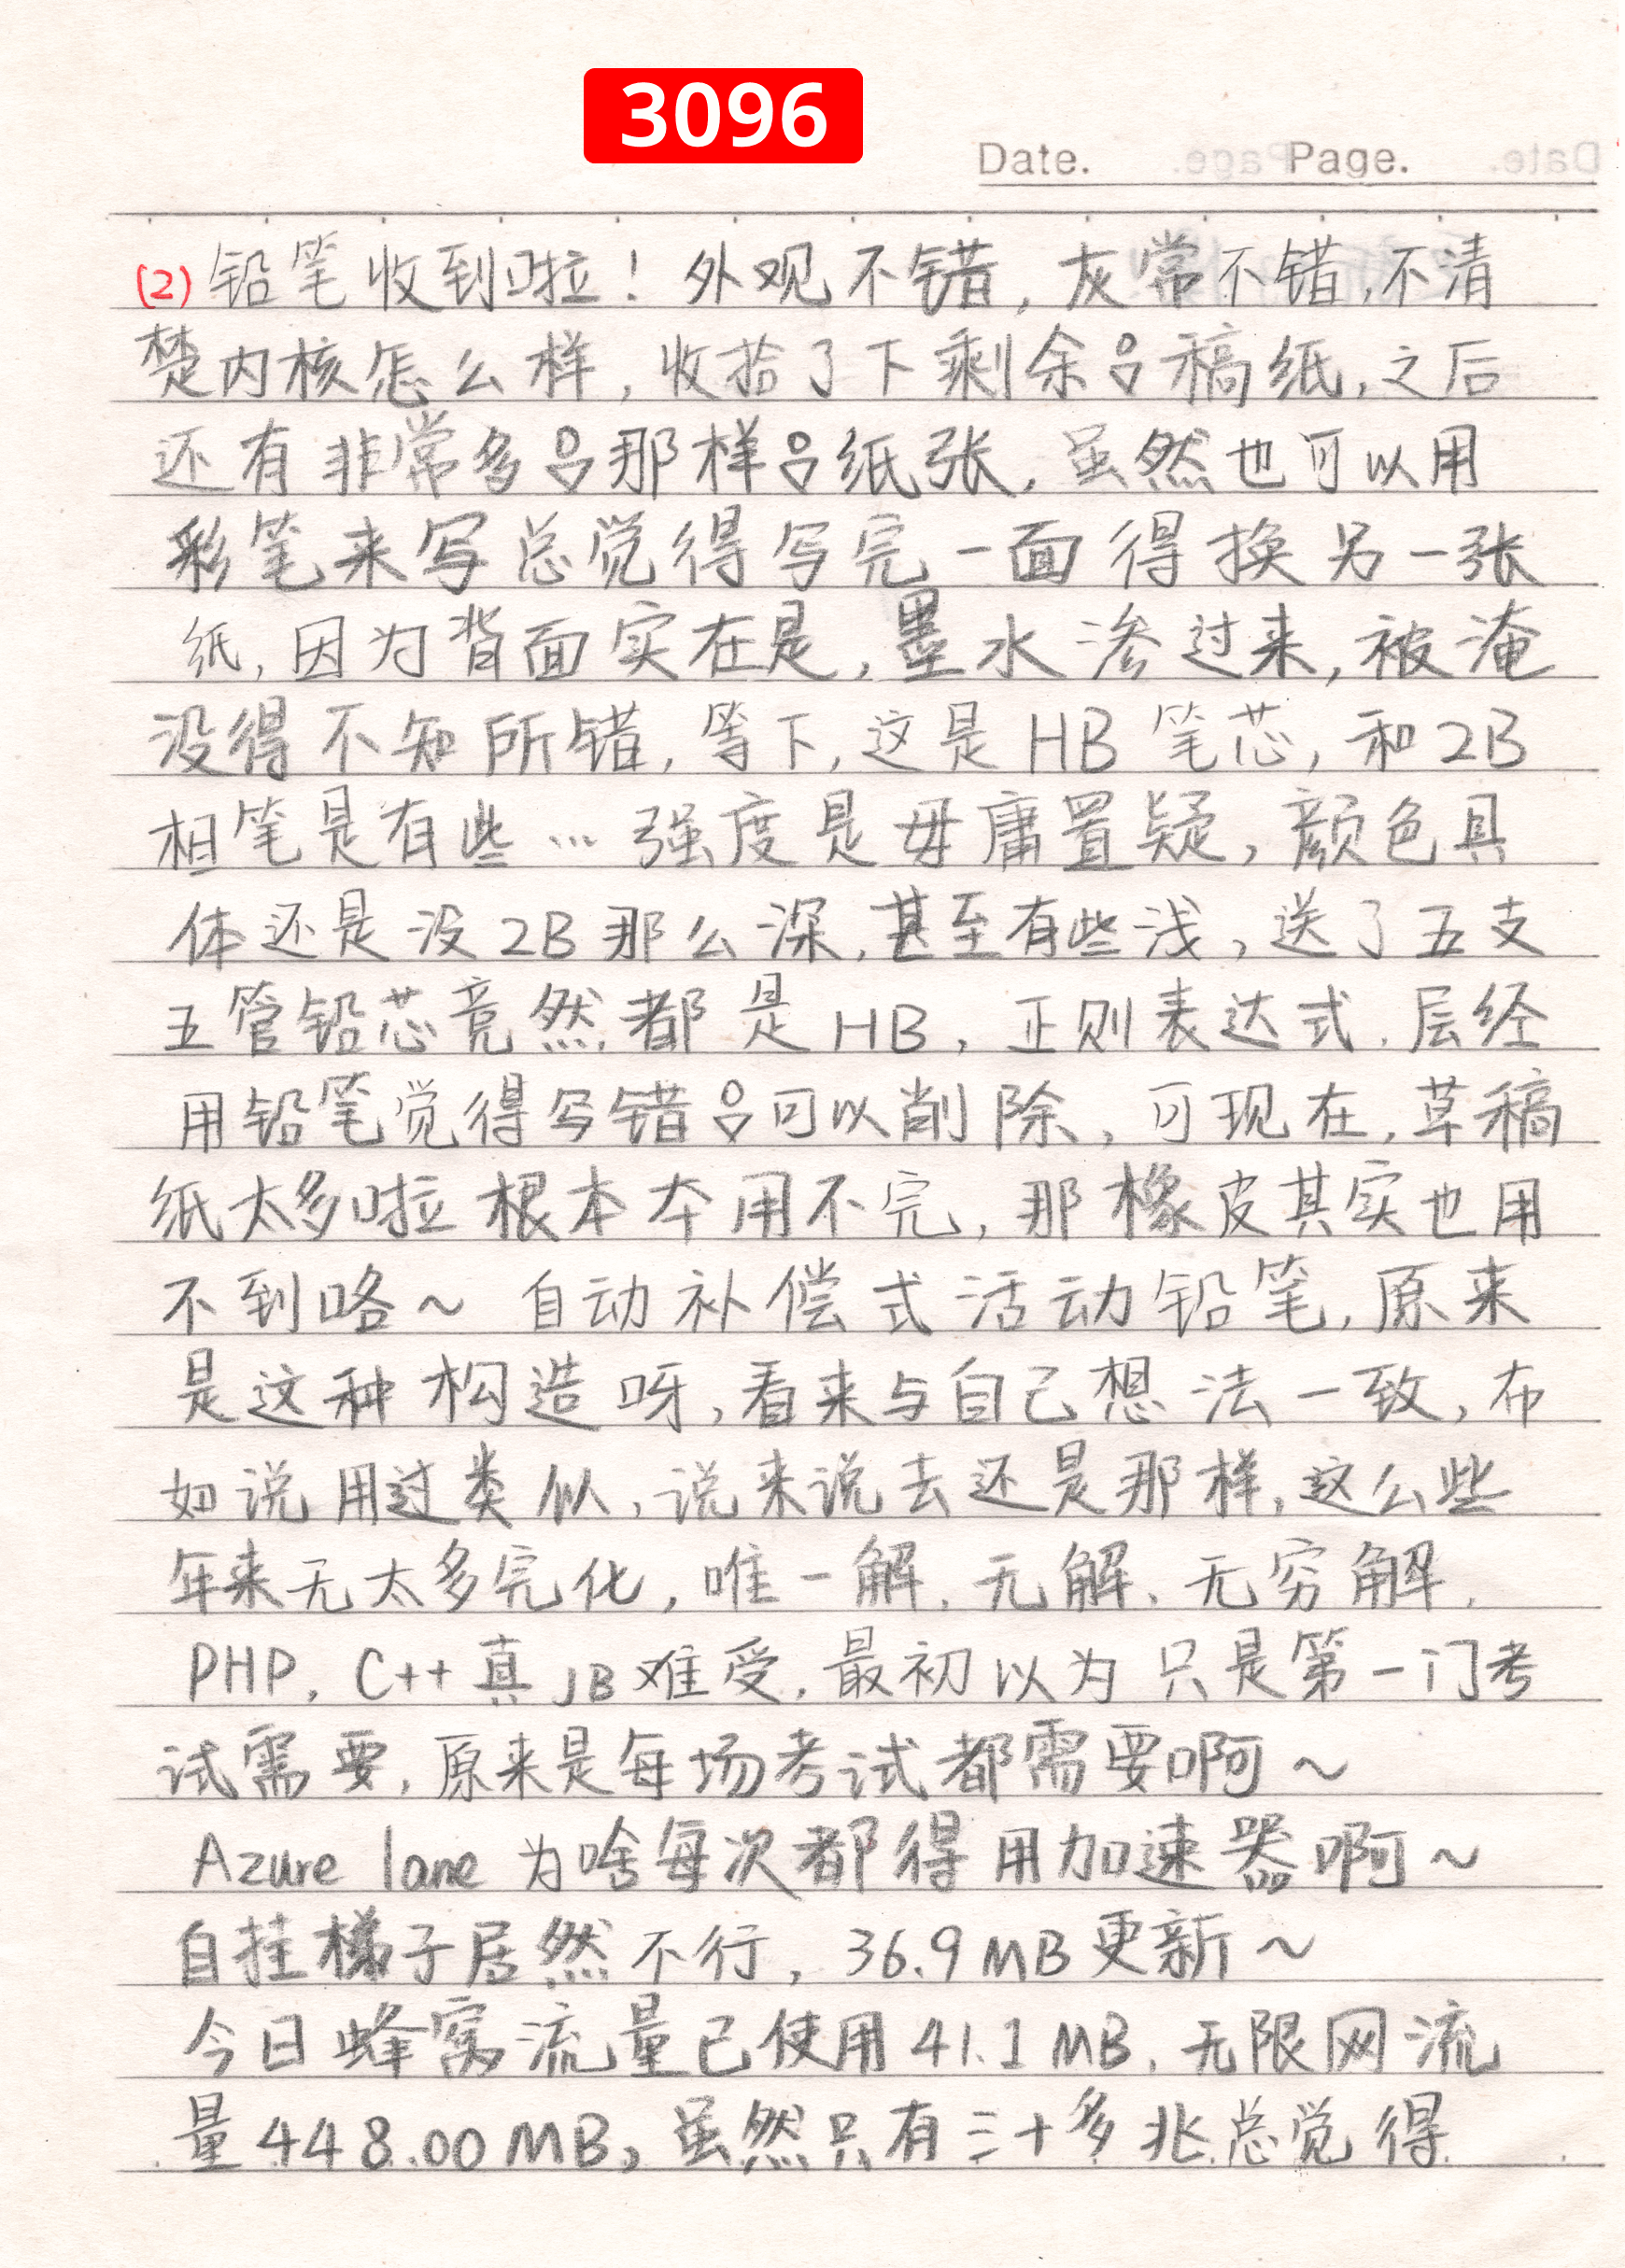 3096
Date. Page.
(2) 铅笔收到啦！外观不错，灰常不错，不清
楚内核怎么样，收拾了下剩余吕稿纸，之后
还有非常多吕那样吕纸张，虽然也可以用
彩笔来写总觉得写完一面得换另一张
纸，因为背面实在是，墨水渗过来，被淹
没得不知所错，等下，这是HB笔芯，和2B
相笔是有些…强度是毋庸置疑，颜色具
体还是没2B那么深，甚至有些浅，送了五支
五管铅芯竟然都是HB，正则表达式．层经
用铅笔觉得写错吕可以削除，可现在，草稿
纸太多啦根本本用不完，那橡皮其实也用
不到咯～ 自动补偿式活动铅笔，原来
是这种构造呀，看来与自己想法一致，布
如说用过类似，说来说去还是那样，这么些
年来无太多完化，唯一解、无解、无穷解．
PHP，C++真JB难受，最初以为只是第一门考
试需要，原来是每场考试都需要啊～
Azure lane为啥每次都得用加速器啊～
自挂梯子居然不行，36.9MB更新～
今日蜂窝流量已使用41.1MB．无限网流
量448.00MB，虽然只有三十多兆总觉得